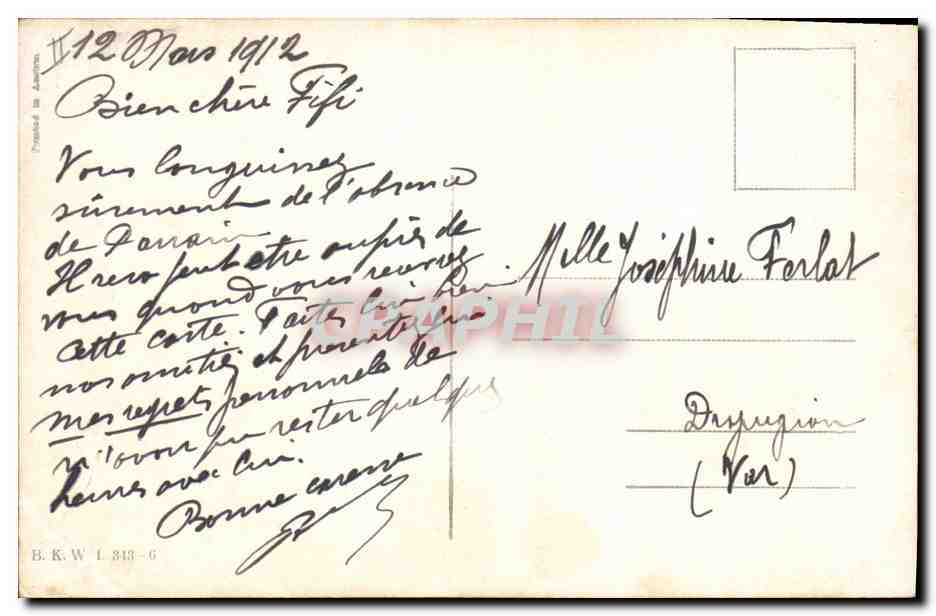 II
12 Mars 1912
Bien chère Fifi
Vous languissez
sûrement de l'absence
de Parrain
Il sera peut être auprès de
vous quand vous recevrez
cette carte. Faites lui bien
nos amitiés et présentez lui
mes regrets personnels de
n'avoir pu rester quelques
heures avec lui.
Bonne caresse
Melle Joséphine Ferlat
(Var)
CPAPHIL
Printed in Austria
B. K. W. I. 343-6